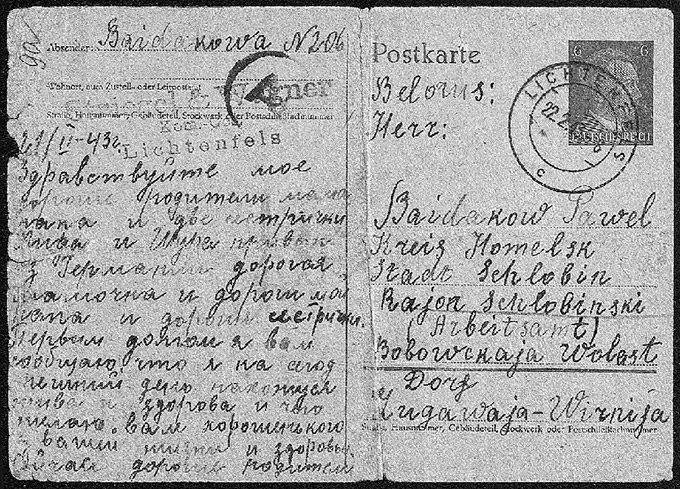 Absender: Baidakowa N206
Wohnort, auch Zustell- oder Leitpostamt
Wagner
Straße, Hausnummer, Gebäudeteil, Stockwerk oder Postschließfachnummer
Lichtenfels
21/II-43г.
Здравствуйте мое
дорогие родители мама
папа и две сестрички
и Шура привет
з Германии дорогая
мамочка и дорогий па
папа и дорогие сестрички.
Первым долгом я вам
сообщаю что я на сегод
нешний день нахожуся
жива и здорова и что
желаю вам хорошенького
в вашей жизни и здоровья
дорогие родители
Postkarte
6 6
DEUTSCHES REICH
LICHTENFELS
22.2.
c
Belorus:
Herr:
Baidakow Pawel
Kreis Homelsk
Stadt Schlobin
Rajon Schlobinski
(Arbeitsamt)
Bobowskaja Wolost
Dorf
Lugawaja-Wirnija
Straße, Hausnummer, Gebäudeteil, Stockwerk oder Postschließfachnummer